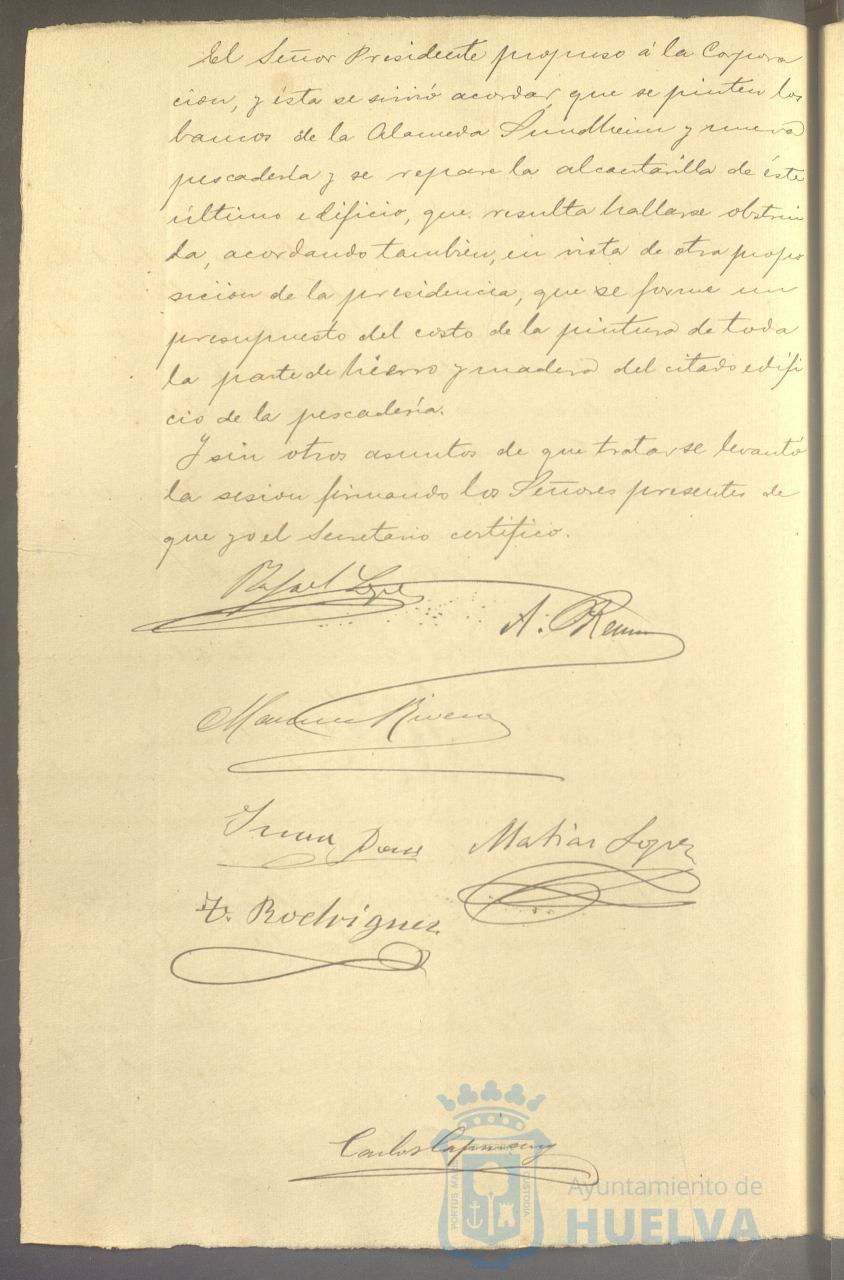 El Señor Presidente propuso á la Corpora
cion, y ésta se sirvió acordar, que se pinten los
bancos de la Alameda Sundheim y nueva
pescadería y se repare la alcantarilla de éste
último edificio, que resulta hallarse obstrui
da, acordando también, en vista de otra propo
sicion de la presidencia, que se forme un
presupuesto del costo de la pintura de toda
la parte de hierro y madera del citado edifi
cio de la pescadería.
Y sin otros asuntos de que tratar se levantó
la sesion firmando los Señores presentes de
que yo el Secretario certifico.
Rafael Lopez
A.
Manuel Rivera
Matias Lopez
Rodriguez
Carlos
PORTUS MARIS
CUSTODIA
Ayuntamiento de
HUELVA